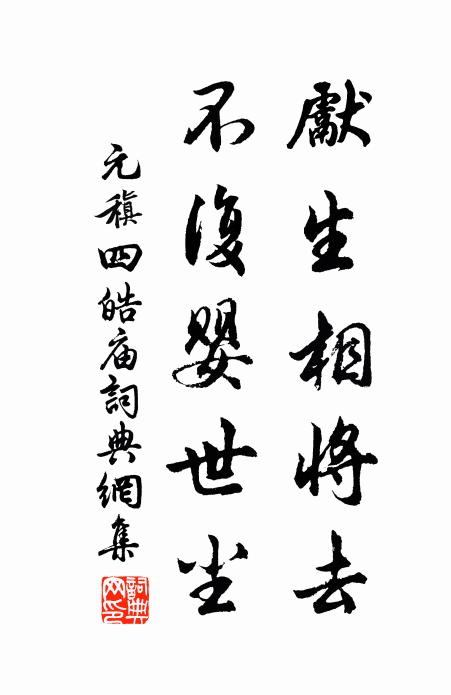 獻生相將去
不復嬰世尘
元稹四皓庙詞典網集
詞典网印